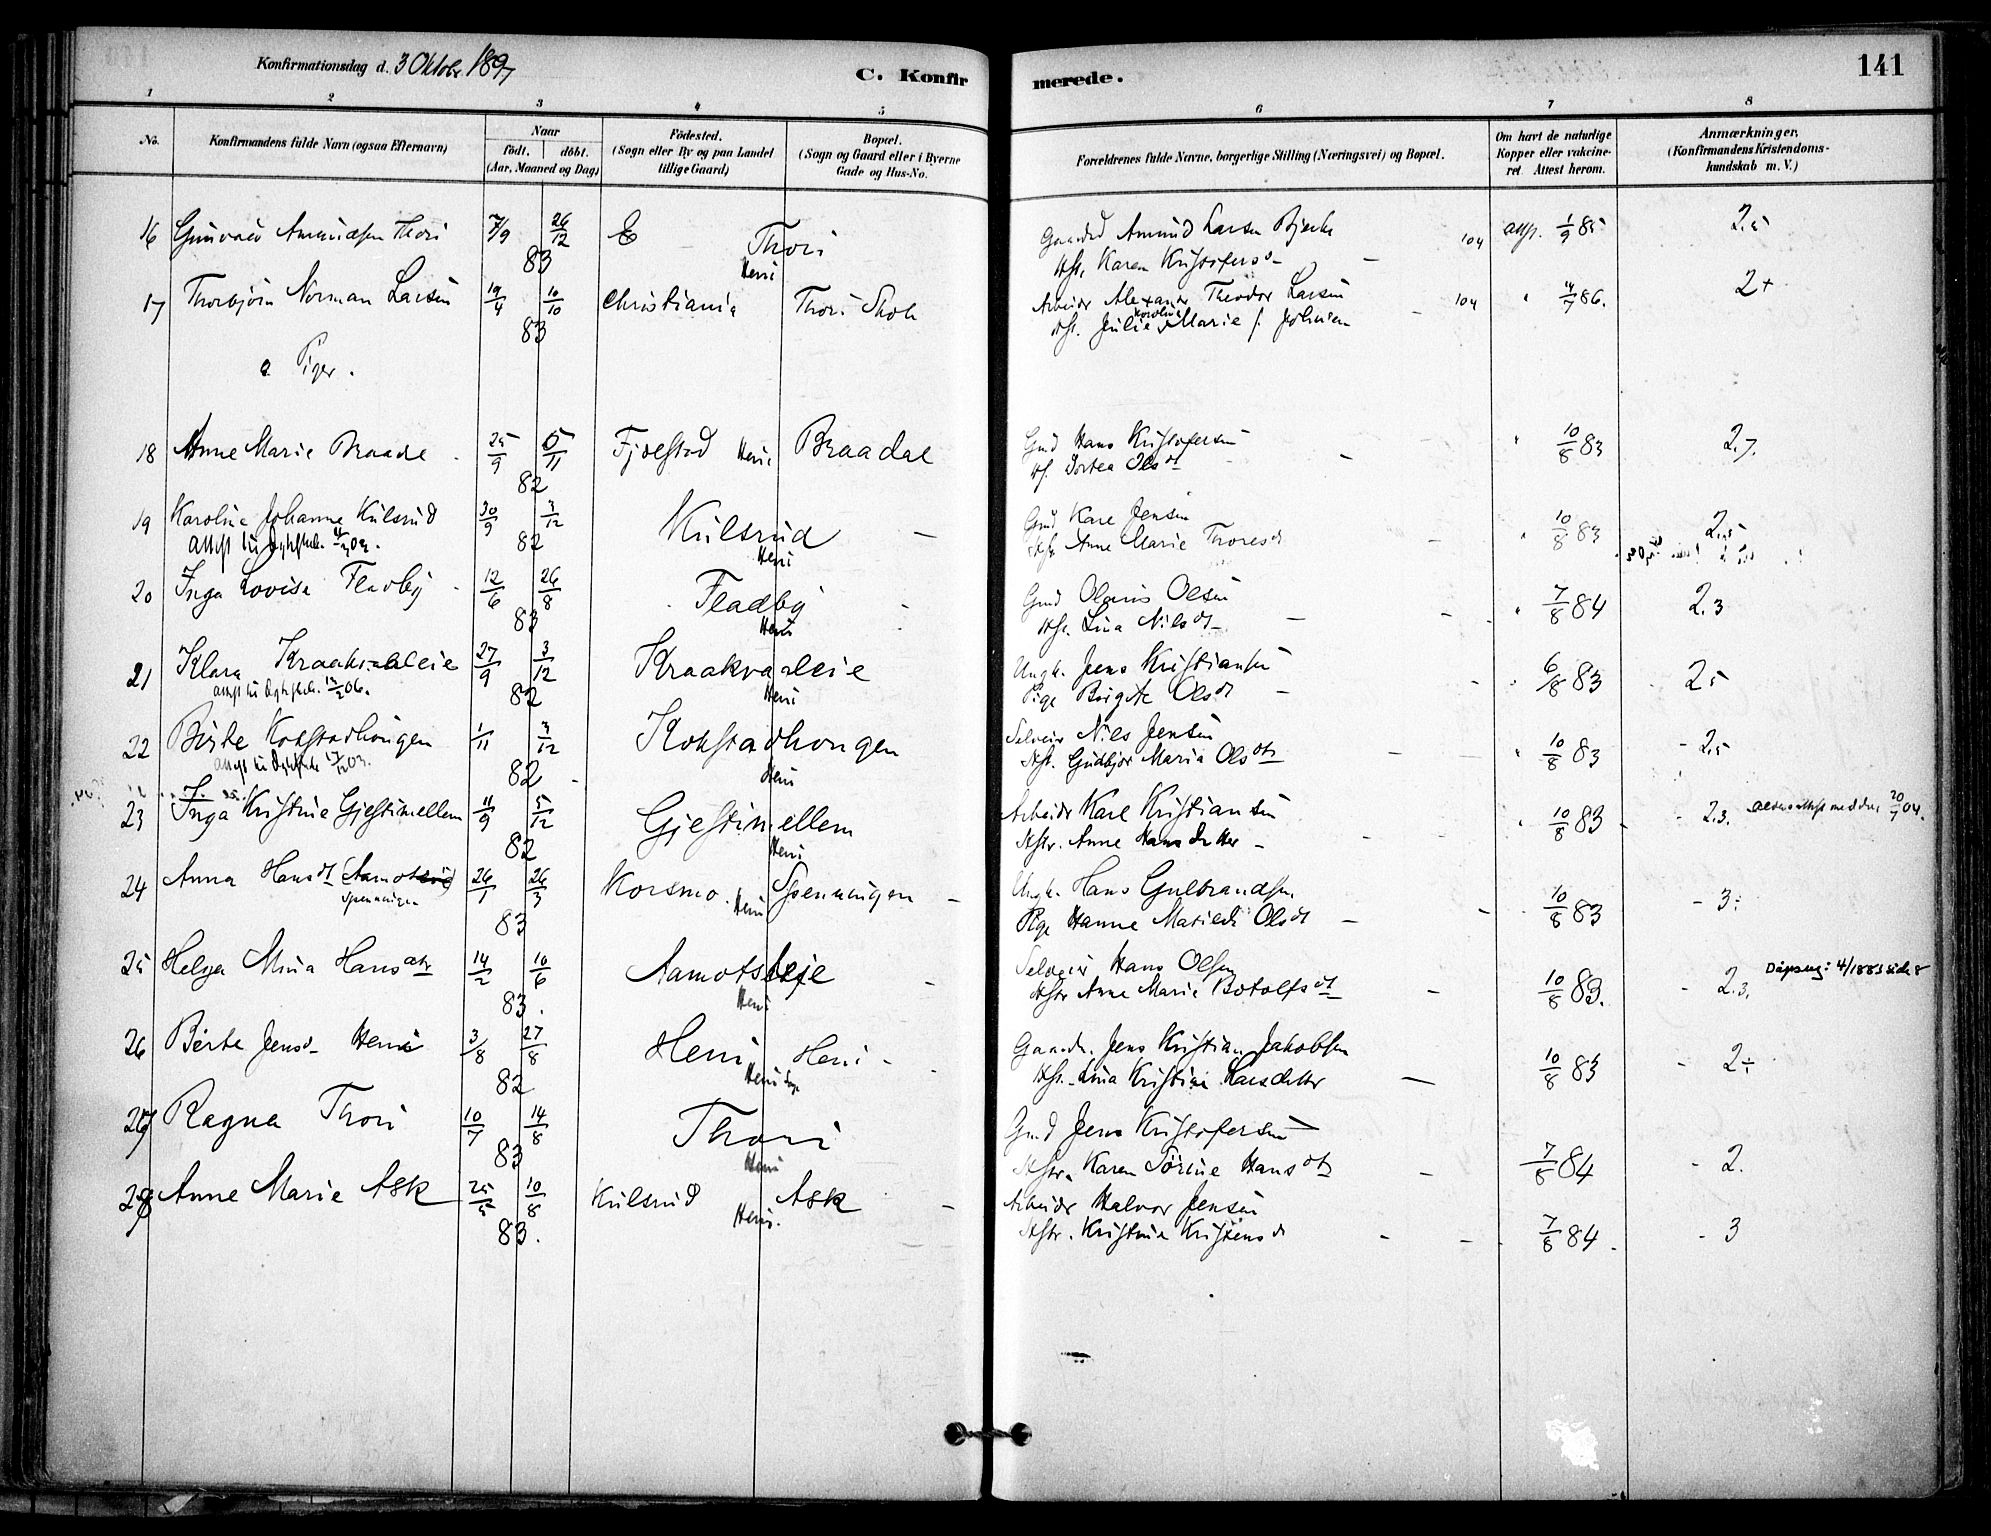 Konfirmationsdag d. 3 Oktobr 1897
C. Konfirmerede.
141
1 2 3 4 5 6 7 8
No. Konfirmandens fulde Navn (ogsaa Efternavn) Naar født. døbt. (Aar, Maaned og Dag) Fødested. (Sogn eller By og paa Landet tillige Gaard) Bopæl. (Sogn og Gaard eller i Byerne Gade og Hus-No. Forældrenes fulde Navne, borgerlige Stilling (Næringsvei) og Bopæl. Om havt de naturlige Kopper eller vakcineret. Attest herom. Anmærkninger. (Konfirmandens Kristendomskundskab m. V.)
16 Amundsen Thori 7/9 26/12 83 Thori Heni Gaardbr Amund Larsen Bjerke 104 1/9 85 2.5
Hst. Karen Kristofersd
17 Thorbjørn Norman Larsen 19/4 10/10 83 Christiania Thori Arbeider Alexander Theodor Larsen 104 86. 2+
Hst. Julie Karoline Marie f.
a Piger.
18 Anne Marie Braade 25/9 5/11 82 Fjelstad Heni Braadal Gmd Hans Kristofersen 10/8 83 2.
H. Dortea Olsdt
19 Karoline Johanne Kulsrud 30/9 3/12 82 Kulsrud Heni Gmd Kare Jensen 10/8 83 2.5
Hst. Anne Marie Thoresd
20 Inga Lovise Fladby 12/6 26/8 83 Fladby Heni Gmd Olaus Olsen 7/8 84 2.3
Hst. Lina Nilsdt
21 Klara Kraakvaleie 27/9 3/12 82 Kraakvaleie Heni Ungk. Jens Kristiansen 6/8 83 2.5
Pige Birgite Olsdt
22 Birte Kokstadhougen 1/11 3/12 82 Kokstadhougen Heni Selveier Nils Jensen 10/8 83 2.5
Hst. Gudbjør Maria Olsdtr
23 Inga Kristine Gjestimellem 11/9 5/12 82 Gjestimellem Heni Arbeider Karl Kristiansen 10/8 83 2.3.
Hstr. Anne Hansdatter
24 Anna Hansdt Spenningen 26/1 26/3 83 Korsmo Heni Spenningen Ungk. Hans Gulbrandsen 10/8 83 3
Pige Hanne Matilde Olsdt
25 Helga Mina Hansdtr 14/2 10/6 83. Aamotsleje Heni Selveier Hans Olsen 10/8 83. 2.3. Daapsreg: 4/1883 side 8
Hstr Anne Marie Botolfsdt
26 Berte Jensd Heni 3/8 27/8 82 Heni Heni Gaardbr. Jens Kristian Jakobsen 10/8 83 2÷
Hst. Lina Kristine Larsdatter
27 Ragna Thori 10/7 14/8 83 Thori Heni Gmd Jens Kristofersen 7/8 84 2.
Hstr. Karen Sørine Hansdt
28 Anne Marie Ask 25/5 10/8 83. Kulsrud Heni. Ask Arbeider Halvor Jensen 7/8 84 3
Hstr. Kristine Kristensd